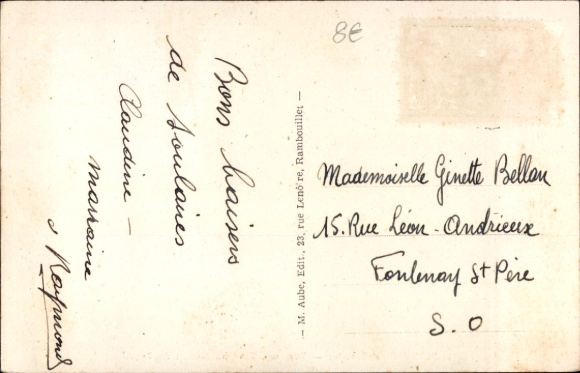 8€
Bons baisers
de Soulaires
Claudine -
marraine
& Raymond
- M. Aube, Edit., 23, rue Lenô're, Rambouillet -
Mademoiselle Ginette Bellan
15. Rue Léon-Andrieux
Fontenay St Père
S. O